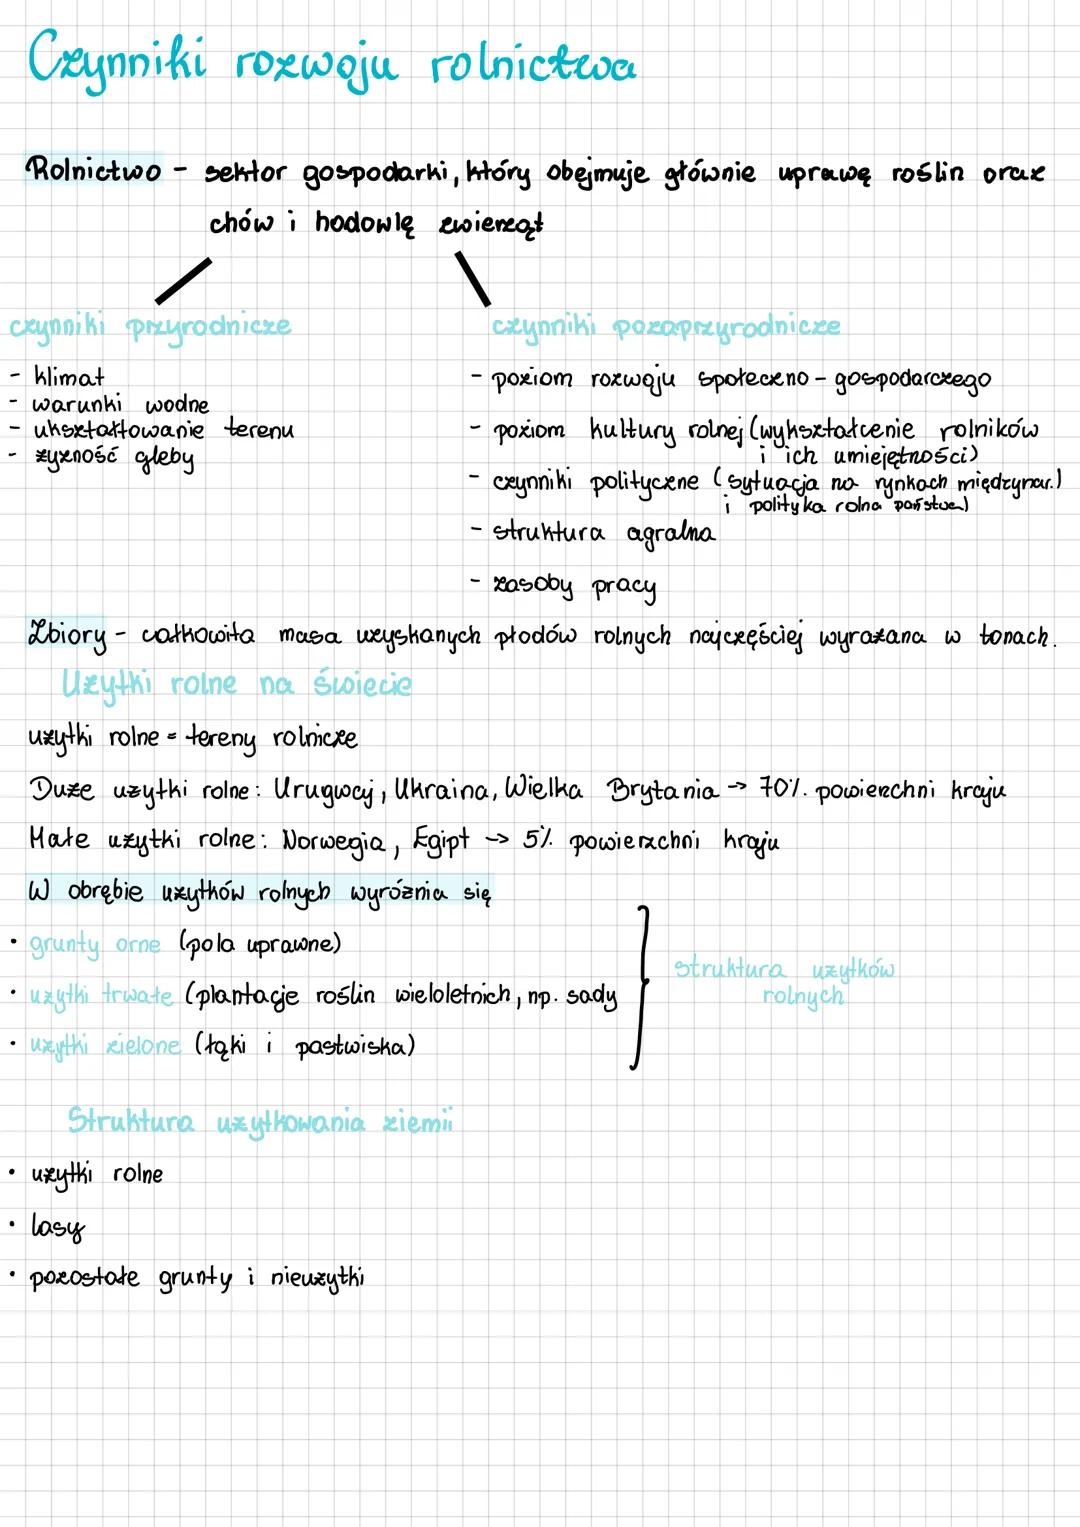 Czynniki rozwoju rolnictwa
Rolnictwo - sektor gospodarki, który obejmuje głównie uprawę roślin oraz
chów i hodowlę zwierząt
czynniki przyrodnicze
- klimat
- warunki wodne
- ukształtowanie terenu
- żyzność gleby
czynniki pozaprzyrodnicze
- poziom rozwoju społeczno - gospodarczego
- poziom kultury rolnej (wykształcenie rolników
i ich umiejętności)
- czynniki polityczne (sytuacja na rynkach międzynar.)
i polityka rolna państwa)
- struktura agralna
- zasoby pracy
Zbiory - całkowita masa uzyskanych płodów rolnych najczęściej wyrażana w tonach.
Użytki rolne na świecie
użytki rolne = tereny rolnicze
Duże użytki rolne: Urugwaj, Ukraina, Wielka Brytania -> 70% powierzchni kraju
Małe użytki rolne: Norwegia, Egipt -> 5% powierzchni kraju
W obrębie użytków rolnych wyróżnia się
• grunty orne (pola uprawne)
• użytki trwałe (plantacje roślin wieloletnich, np. sady
• użytki zielone (łąki i pastwiska)
struktura użytków
rolnych
Struktura użytkowania ziemii
• użytki rolne
• lasy
• pozostałe grunty i nieużytki